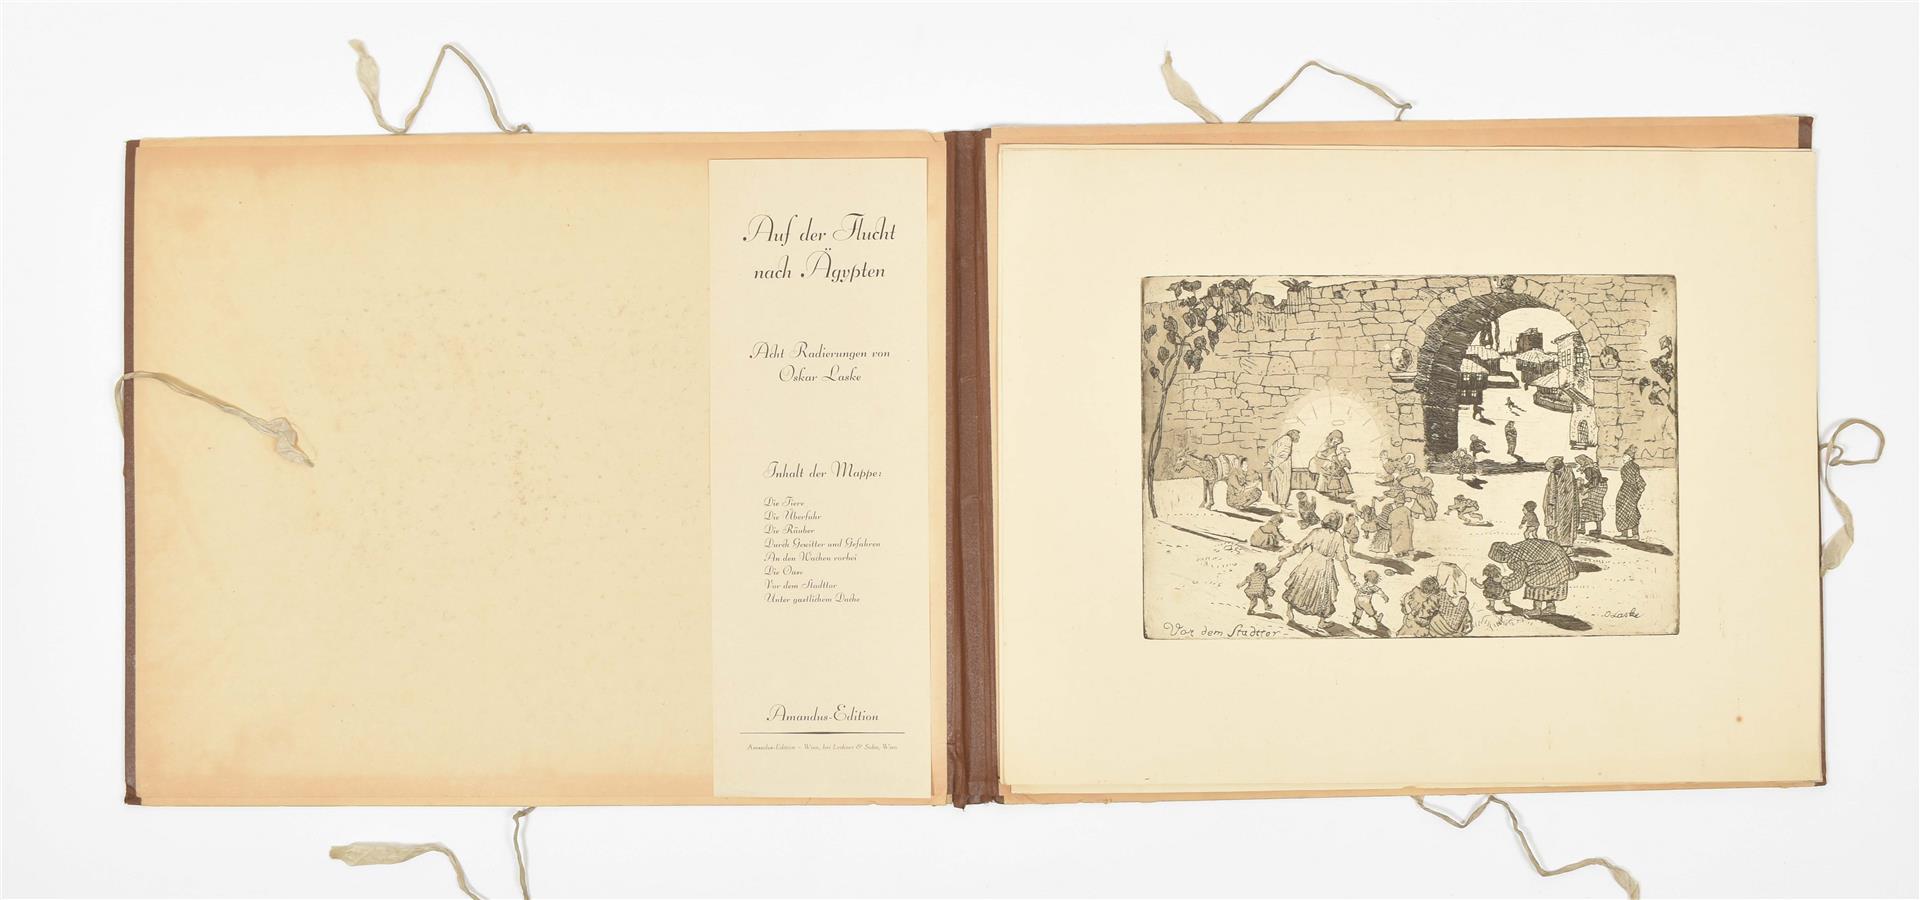 Auf der Flucht
nach Ägypten
Acht Radierungen von
Oskar Laske
Inhalt der Mappe:
Die Tiere
Die Überfuhr
Die Räuber
Durch Gewitter und Gefahren
An den Wachen vorbei
Die Oase
Vor dem Stadttor
Unter gastlichem Dache
Amandus-Edition
Amandus-Edition – Wien, bei Lechner & Sohn, Wien
Vor dem Stadttor
O Laske